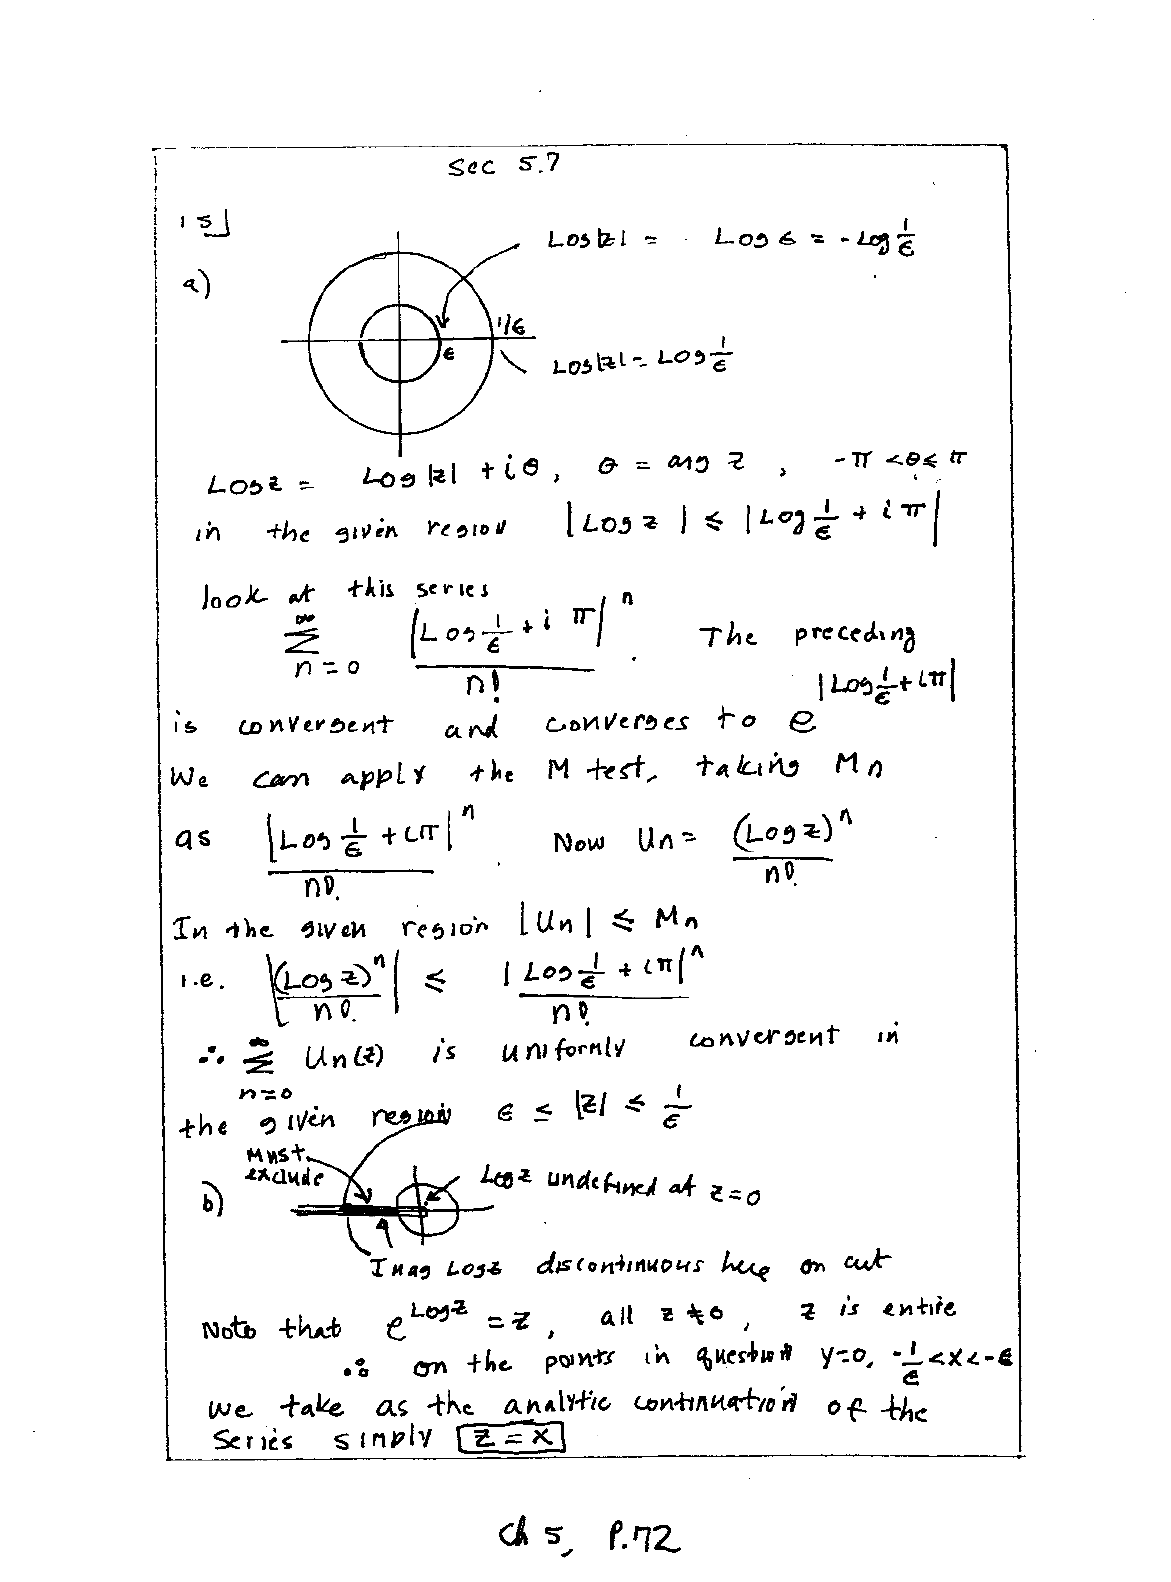 Sec 5.7
15
a)
Log|z| = Log ε = -Log 1/ε
1/ε
ε
Log|z| = Log 1/ε
Log z = Log |z| + iθ, θ = arg z , -π <θ≤ π
in the given region |Log z| ≤ |Log 1/ε + iπ|
look at this series
∞ Σ n=0 |Log 1/ε + i π|^n / n! . The preceding
is convergent and converges to e^|Log 1/ε + iπ|
We can apply the M test, taking Mn
as |Log 1/ε + iπ|^n / n! Now Un = (Log z)^n / n!
In the given region |Un| ≤ Mn
i.e. |(Log z)^n / n!| ≤ |Log 1/ε + iπ|^n / n!
∴ ∞ Σ n=0 Un(z) is uniformly convergent in
the given region ε ≤ |z| ≤ 1/ε
Must
exclude
b)
Log z undefined at z=0
Imag Log z discontinuous here on cut
Note that e^Log z = z, all z ≠ 0, z is entire
∴ on the points in question y=0, -1/ε <x<-ε
We take as the analytic continuation of the
series simply z = x
Ch 5, P.72